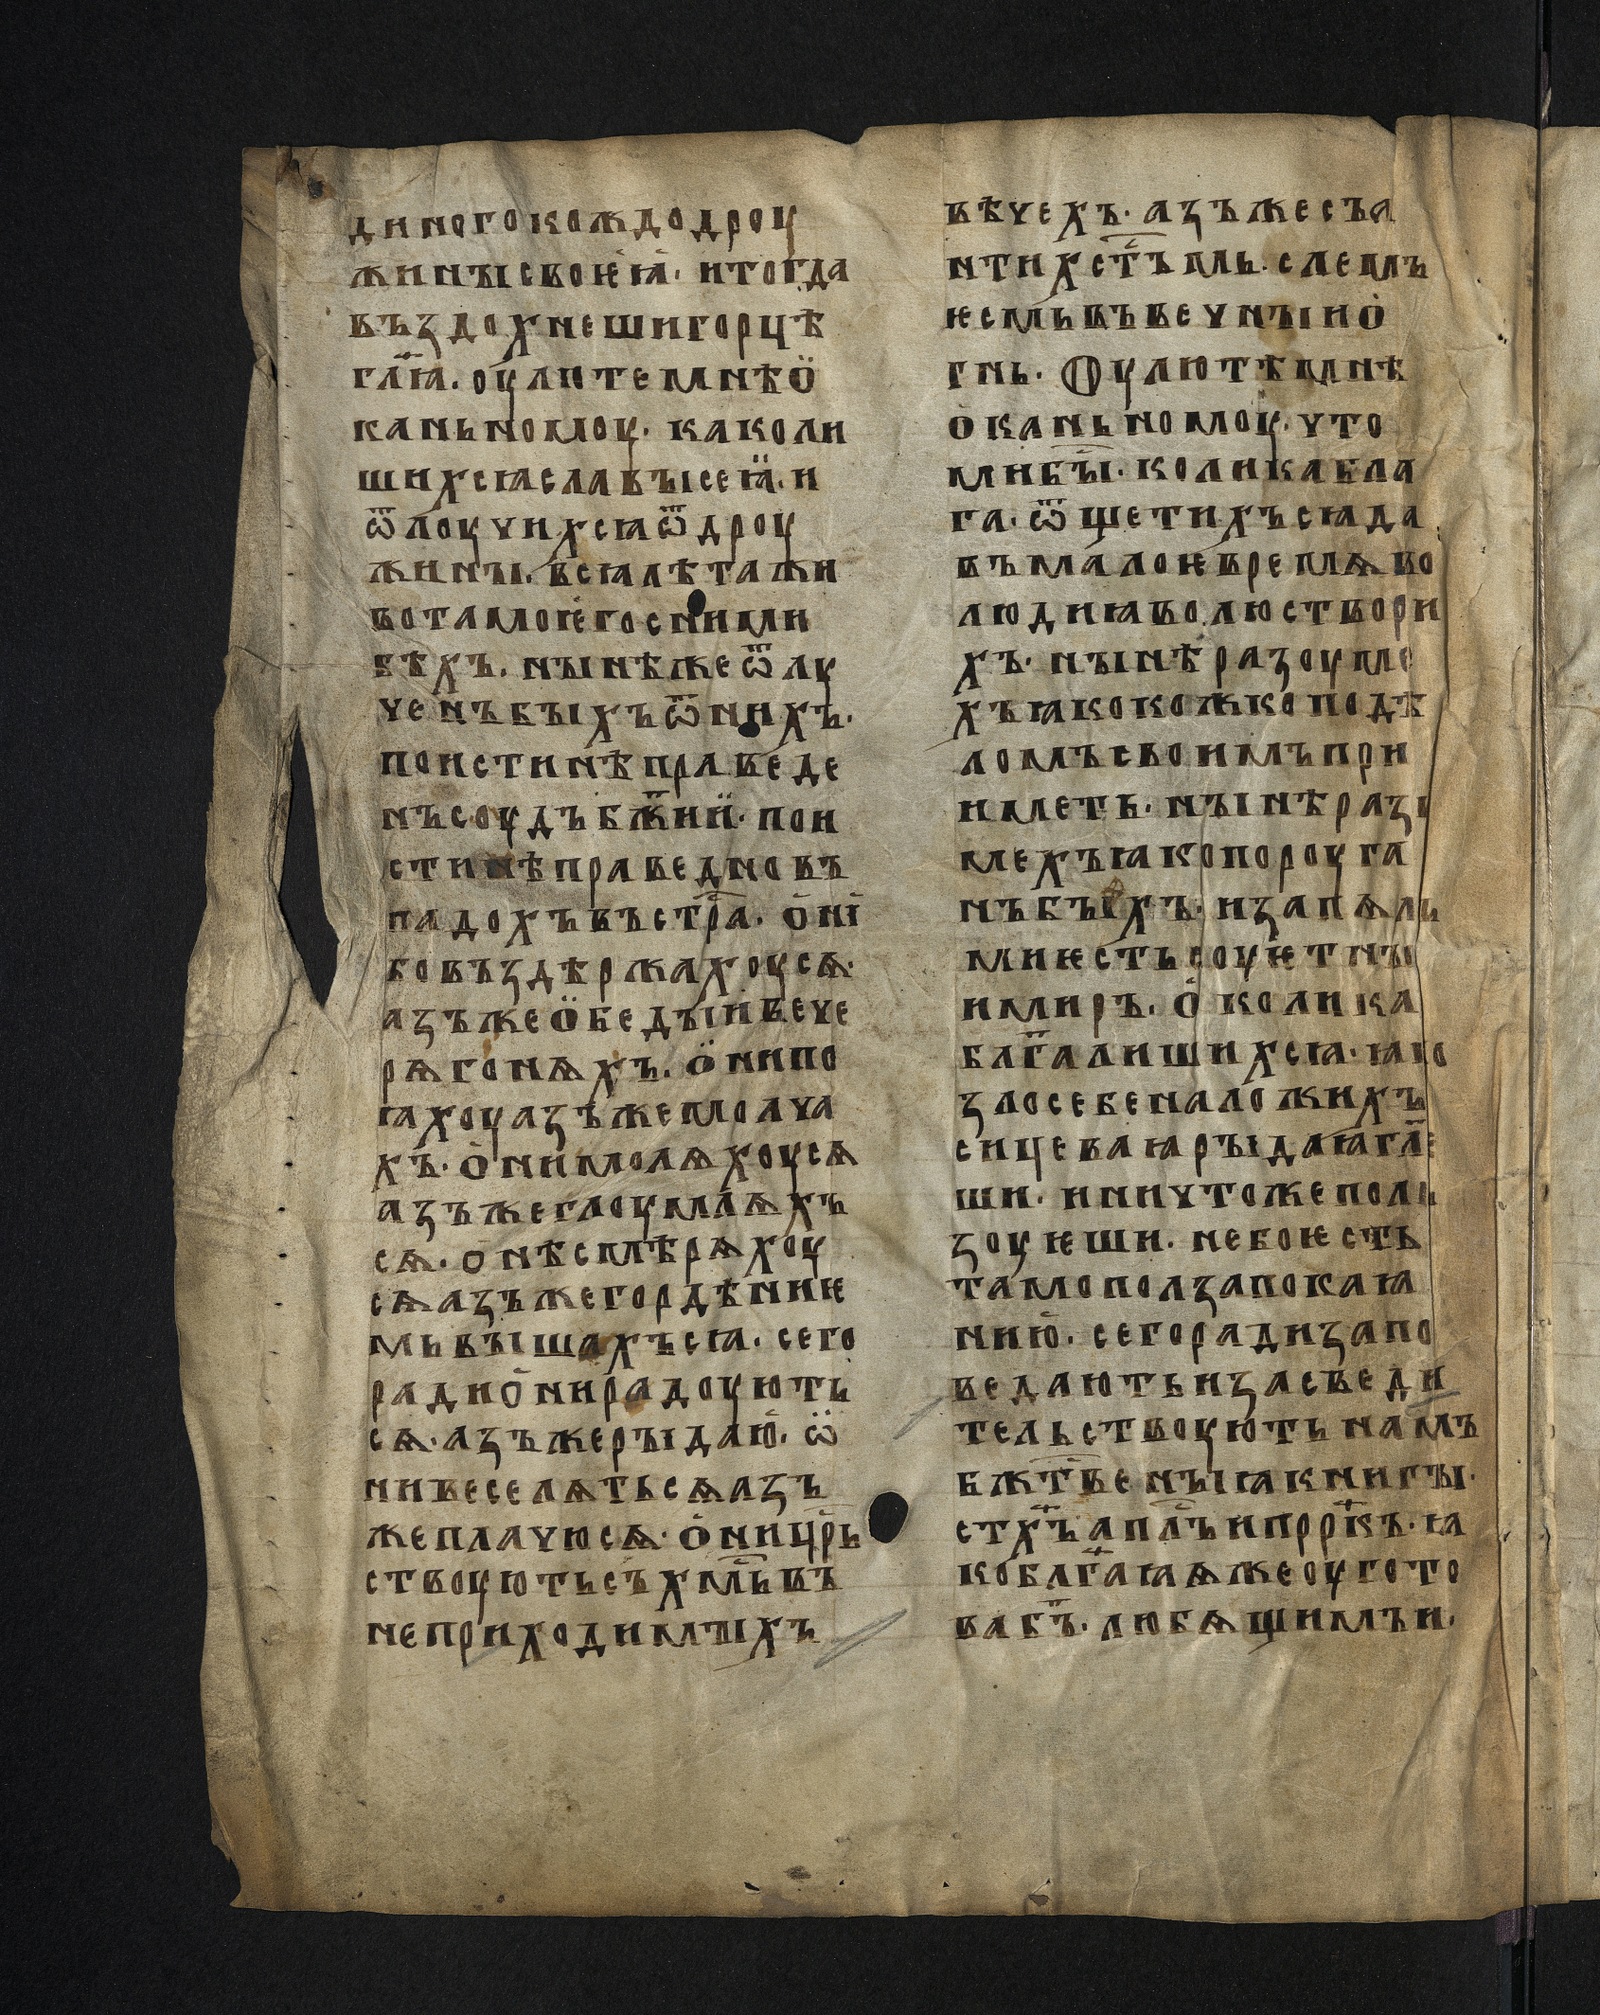 диногокождодроу
жинꙑсвоѥꙗ· итогда
въздохнешигорцѣ
гл҃ꙗ· оулютемнѣѡ
каньномоу· каколи
шихсꙗславꙑсеꙗ· и
ѿлоучихсꙗѿдроу
жинꙑ· всꙗлѣтажи
вотамоѥгоснимми
бѣхъ· нꙑнѣжеѿлу
ченъбꙑхъѿнихъ·
поистинѣправеде
нъсоудъбж҃ии· пои
стинѣправедновъ
падохъвъстр҃а· ониї
бовъздѣржахоусѧ·
азъжеобедꙑивече
рѧгонѧхъ· онипо
ꙗхоуазъжемолча
хъ· онимолѧхоусѧ
азъжеглоумлѧхъ
сѧ· онѣсмѣрѧхоу
сѧазъжегордѣниѥ
мьвꙑшахъсꙗ· сего
радионирадоують
сѧ· азъжерꙑдаю· ѡ
нивеселѧтьсѧазъ
жеплачюсѧ· оницр҃ь
ствоуютьсъхм҃ьвъ
неприходимꙑхъ
вѣчехъ· азъжесъа
нтихс҃тъмль· слемъ
ѥсмьвъвечнꙑио
гнь· Оулютѣмнѣ
оканьномоу· что
мибꙑ· коликабла
га· ѿщетихъсꙗда
въмалоѥвремѧво
людиꙗволюствори
хъ· нꙑнѣразоуме
хъꙗкокождоподѣ
ломъсвоимъпри
иметь· нꙑнѣразꙋ
мехъꙗкопороуга
нъбꙑхъ· изапѧль
миѥстьсоуѥтнꙑ
имиръ· околика
блг҃алишихсꙗ· ꙗко
злосебеналожихъ
сицеваꙗрꙑдаꙗгл҃е
ши· иничтожеполь
зоуѥши· небоѥсть
тамоползапокаꙗ
нию· сегорадизапо
ведаютьизасведи
тельствоуютьнамъ
бжт҃венꙑꙗкнигꙑ·
стх҃ъапл҃ъипррк҃ъ· ꙗ
коблг҃аꙗꙗжеоугото
вабъ҃· любѧщимъи·